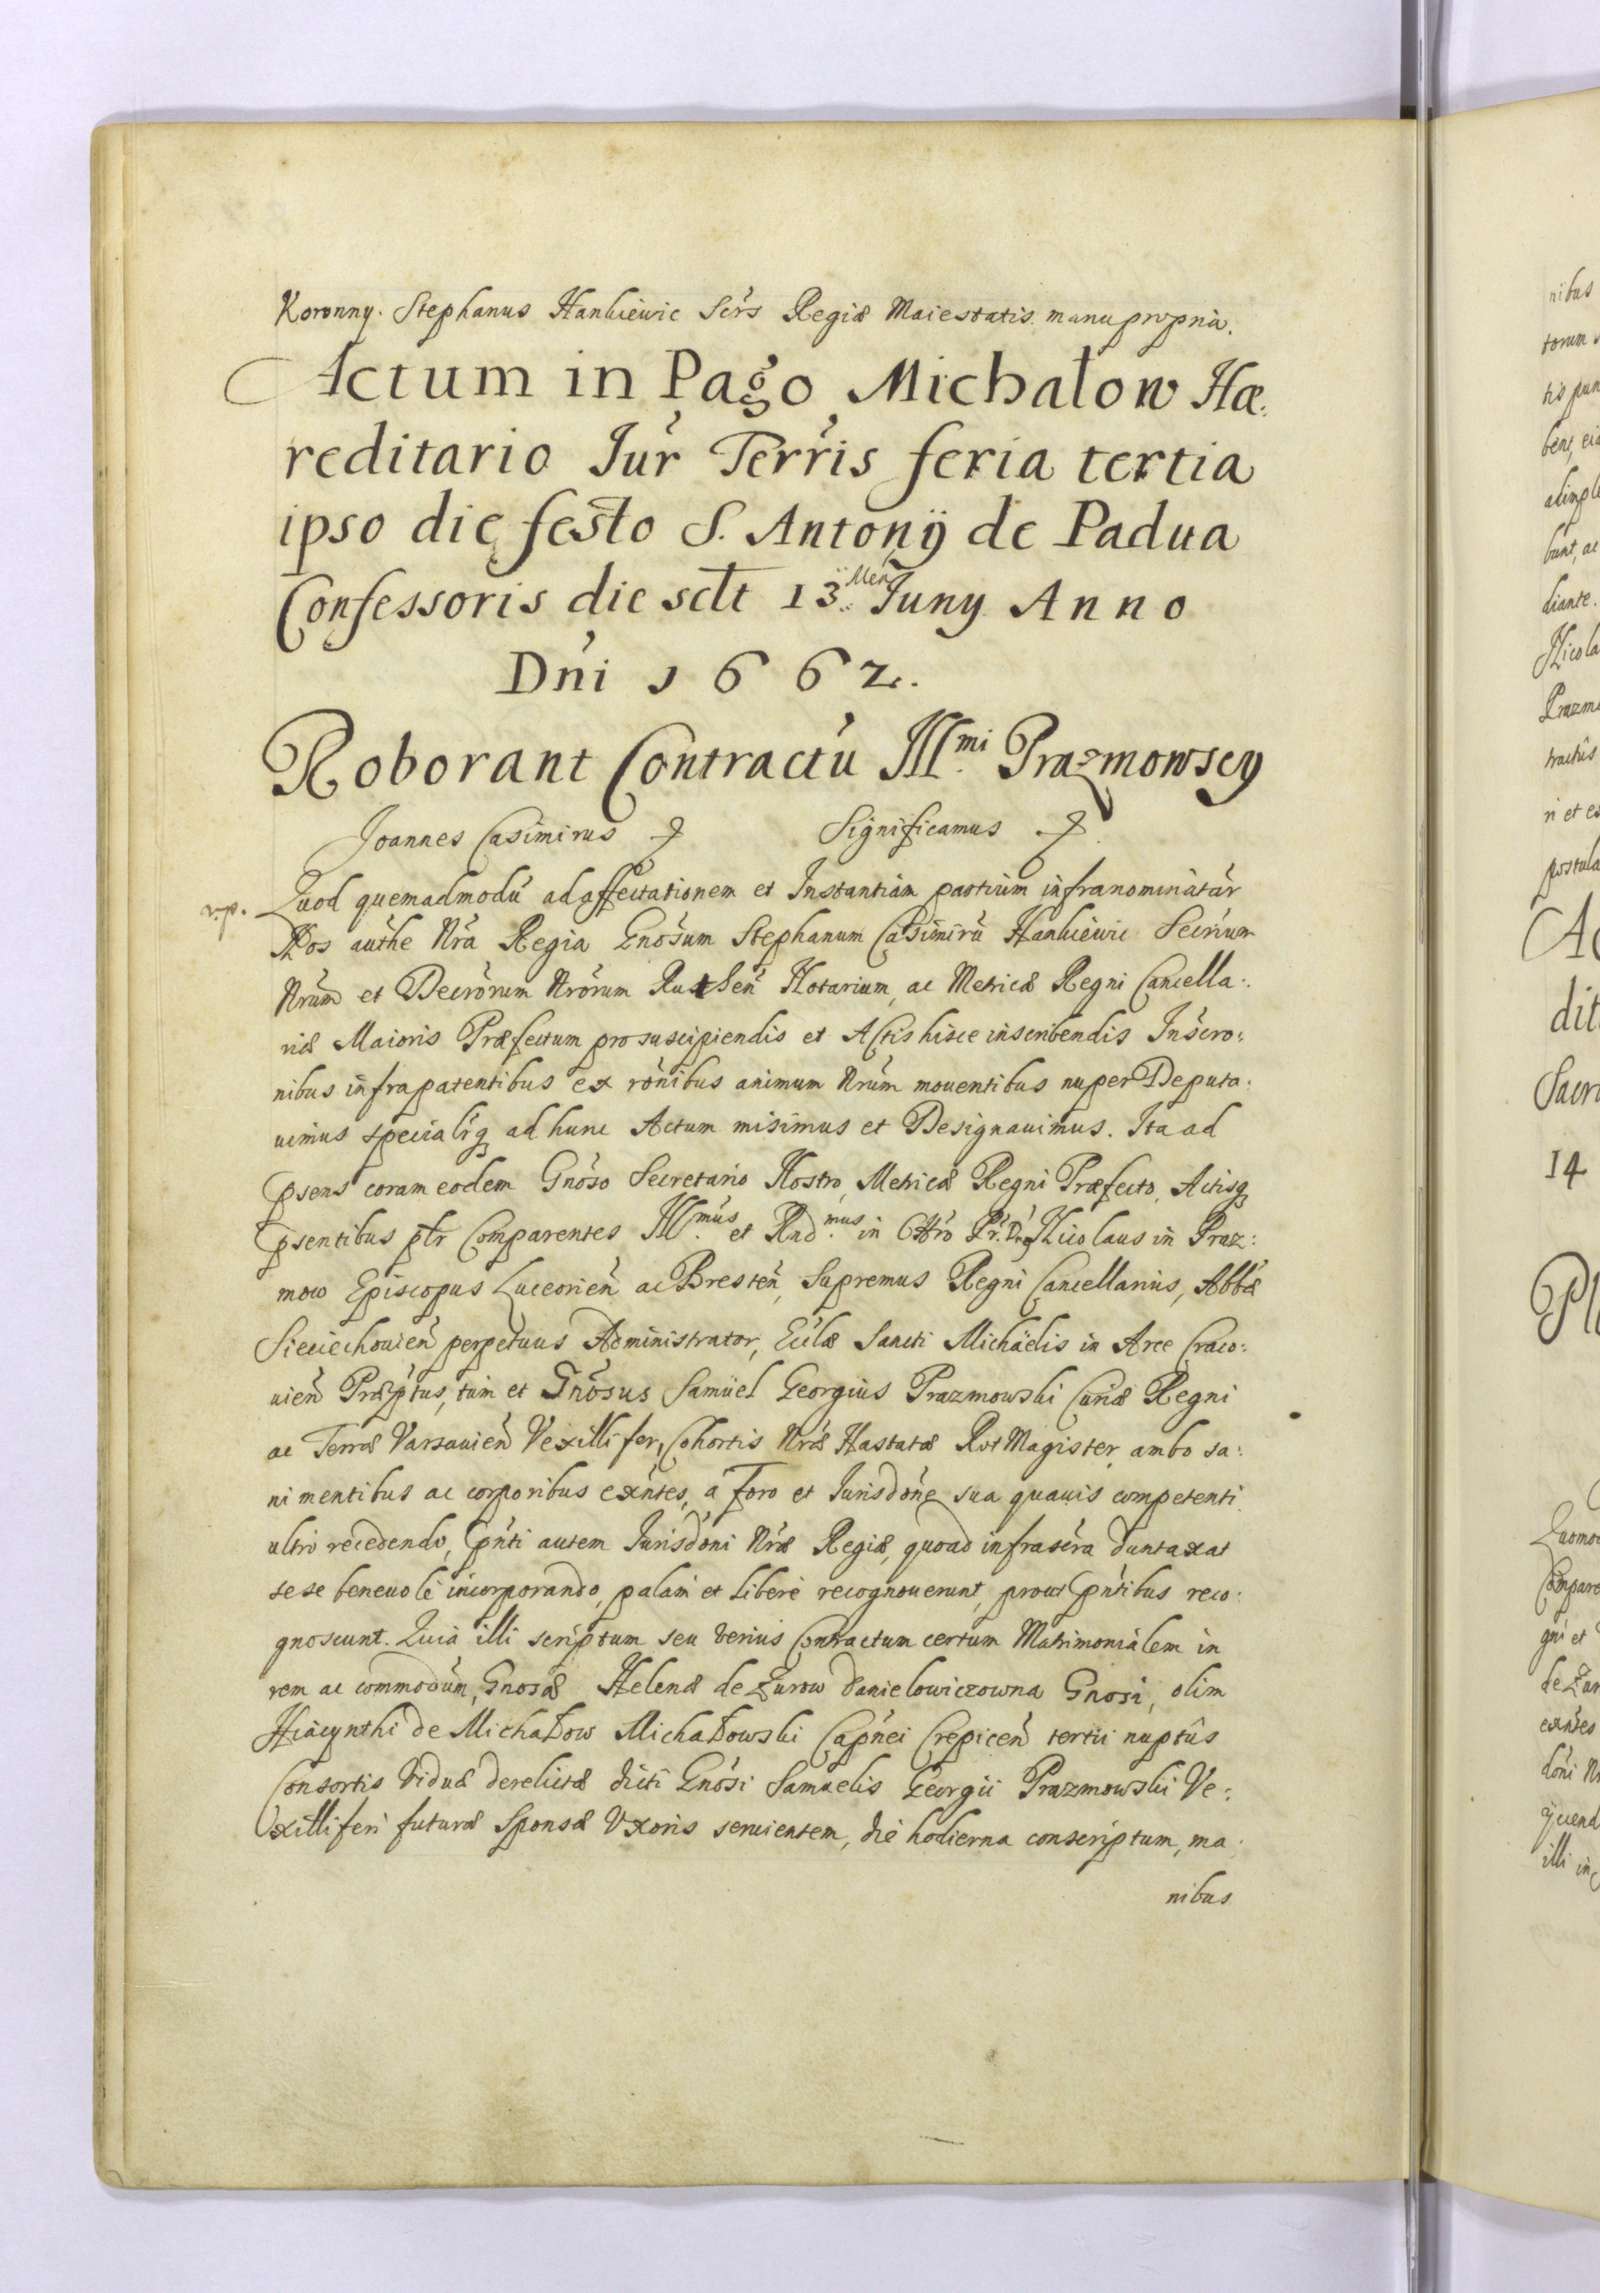 Koronny. Stephanus Hankiewic Scrs Regiæ Maiestatis manu propria.
Actum in Pago Michałow Hæ:
reditario Jur Terris feria tertia
ipso die festo S. Antonÿ de Padua
Confessoris die sclt 13. Men Juny Anno
Dni 1662.
Roborant Contractu Ill.mi Prazmowscy
Joannes Casimirus
Significamus
r.p. Quod quemadmodū ad affectationem et Instantiam partium infranominatar
Nos authe Nra Regia Gnosum Stephanum Casimirū Hankiewic Secrium
Nrum et Decrorum Nrorum Ruthen Notarium, ac Metricæ Regni Cancella:
riæ Maioris Præfectum pro suscipiendis et Actis hisce inscribendis Inscro:
nibus infrapatentibus ex ronibus animum Nrum mouentibus nuper Deputa:
uimus specialrq ad hunc Actum misimus et Designauimus. Ita ad
psens coram eodem Gnoso Secretario Nostro, Metricæ Regni Præfecto, Actisq
psentibus plr Comparentes Ill.mus et Rnd.mus in Chro Pr. Dnq Nicolaus in Praz:
mow Episcopus Luceorien ac Bresten, Supremus Regni Cancellarius, Abbæ
Sieciechouien perpetuus Administrator, Ecclæ Sancti Michaëlis in Arce Craco:
uien Præptus, tum et Gnosus Samuel Georgius Prazmowski Curiæ Regni
ac Terræ Varsauien Vexillifer, Cohortis Nræ Hastatæ RotMagister, ambo sa:
ni mentibus ac corporibus exntes, a foro et Jurisdone sua quauis competenti
ultro recedendo, Pnti autem Jurisdoni Nræ Regiæ, quoad infrascra duntaxat
sese beneuole incorporando, palam et libere recognouerunt, prout Pntibus reco:
gnoscunt. Quia illi scriptum seu verius Contractum certum Matrimonialem in
rem ac commodum, Gnosæ Helenæ de Zurow Danielowiczowna Gnosi, olim
Hiacynthi de Michałow Michałowski Capnei Crepicen tertii nuptûs
Consortis Viduæ derelictæ dicti Gnosi Samuelis Georgii Prazmowski Ve:
xilliferi futuræ Sponsæ Uxoris seruientem, die hodierna conscriptum, ma:
nibus
nibus
14